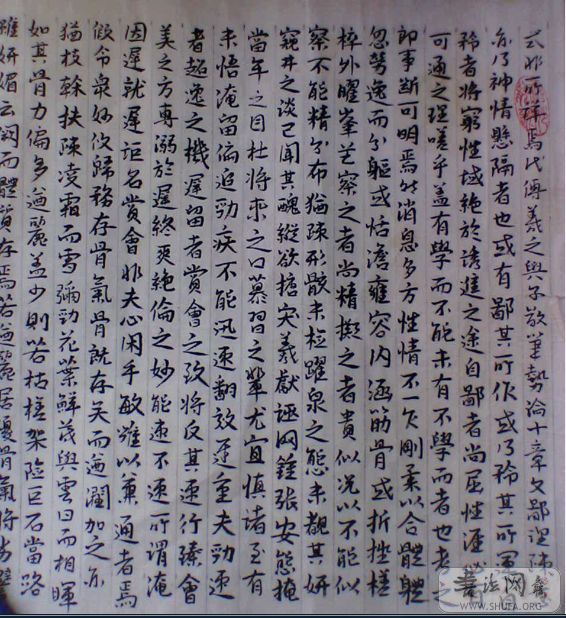 式非所詳焉代傳羲之與子敬筆勢論十章文鄙理疎
亦乃神情懸隔者也或有鄙其所作或乃矜其所運自
矜者將窮性域絕於誘進之途自鄙者尚屈情涯必有
可通之理嗟乎蓋有學而不能未有不學而者也考之
即事斷可明焉然消息多方性情不一乍剛柔以合體
忽勞逸而分軀或恬澹雍容内涵筋骨或折挫槎
枿外曜峯芒察之者尚精擬之者貴似況以不能似
察不能精分布猶疎形骸未檢躍泉之態未覩其妍
窺井之談已聞其醜縱欲搪突羲獻誣罔鍾張安能掩
當年之目杜將來之口慕習之輩尤宜慎諸至有
未悟淹留偏追勁疾不能迅速翻效遲重夫勁速
者超逸之機遲留者賞會之致將反其速行臻會
美之方專溺於遲終爽絕倫之妙能速不速所謂淹
因遲就遲詎名賞會非夫心閑手敏難以兼通者焉
假令衆妙攸歸務存骨氣骨既存矣而遒潤加之亦
猶枝幹扶疎凌霜而雪彌勁花葉鮮茂與雲日而相暉
如其骨力偏多遒麗蓋少則若枯槎架險巨石當路
雖妍媚云闕而體質存焉若遒麗居優骨氣將劣譬
書法网
WWW.SHUFA.ORG